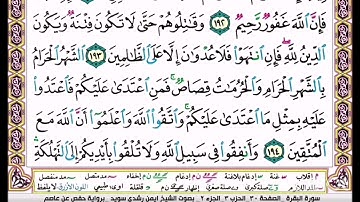 فَإِنَّ ٱللَّهَ غَفُورٌ رَّحِيمٌ ١٩٢ وَقَٰتِلُوهُمْ حَتَّىٰ لَا تَكُونَ فِتْنَةٌ وَيَكُونَ
ٱلدِّينُ لِلَّهِ فَإِنِ ٱنتَهَوْا۟ فَلَا عُدْوَٰنَ إِلَّا عَلَى ٱلظَّٰلِمِينَ ١٩٣ ٱلشَّهْرُ ٱلْحَرَامُ
بِٱلشَّهْرِ ٱلْحَرَامِ وَٱلْحُرُمَٰتُ قِصَاصٌ فَمَنِ ٱعْتَدَىٰ عَلَيْكُمْ فَٱعْتَدُوا۟
عَلَيْهِ بِمِثْلِ مَا ٱعْتَدَىٰ عَلَيْكُمْ وَٱتَّقُوا۟ ٱللَّهَ وَٱعْلَمُوٓا۟ أَنَّ ٱللَّهَ مَعَ
ٱلْمُتَّقِينَ ١٩٤ وَأَنفِقُوا۟ فِى سَبِيلِ ٱللَّهِ وَلَا تُلْقُوا۟ بِأَيْدِيكُمْ إِلَى ٱلتَّهْلُكَةِ
سورة البقرة الصفحة ٣٠ الحزب ٣ الجزء ٢ بصوت الشيخ أيمن رشدي سويد برواية حفص عن عاصم